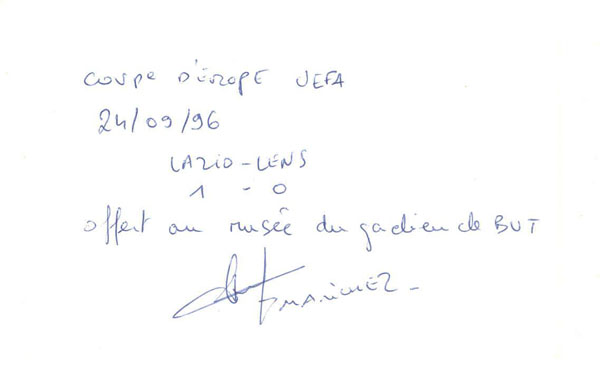 COUPE D'EUROPE UEFA
24/09/96
LAZIO-LENS
1 - 0
offert au musée du gardien de BUT